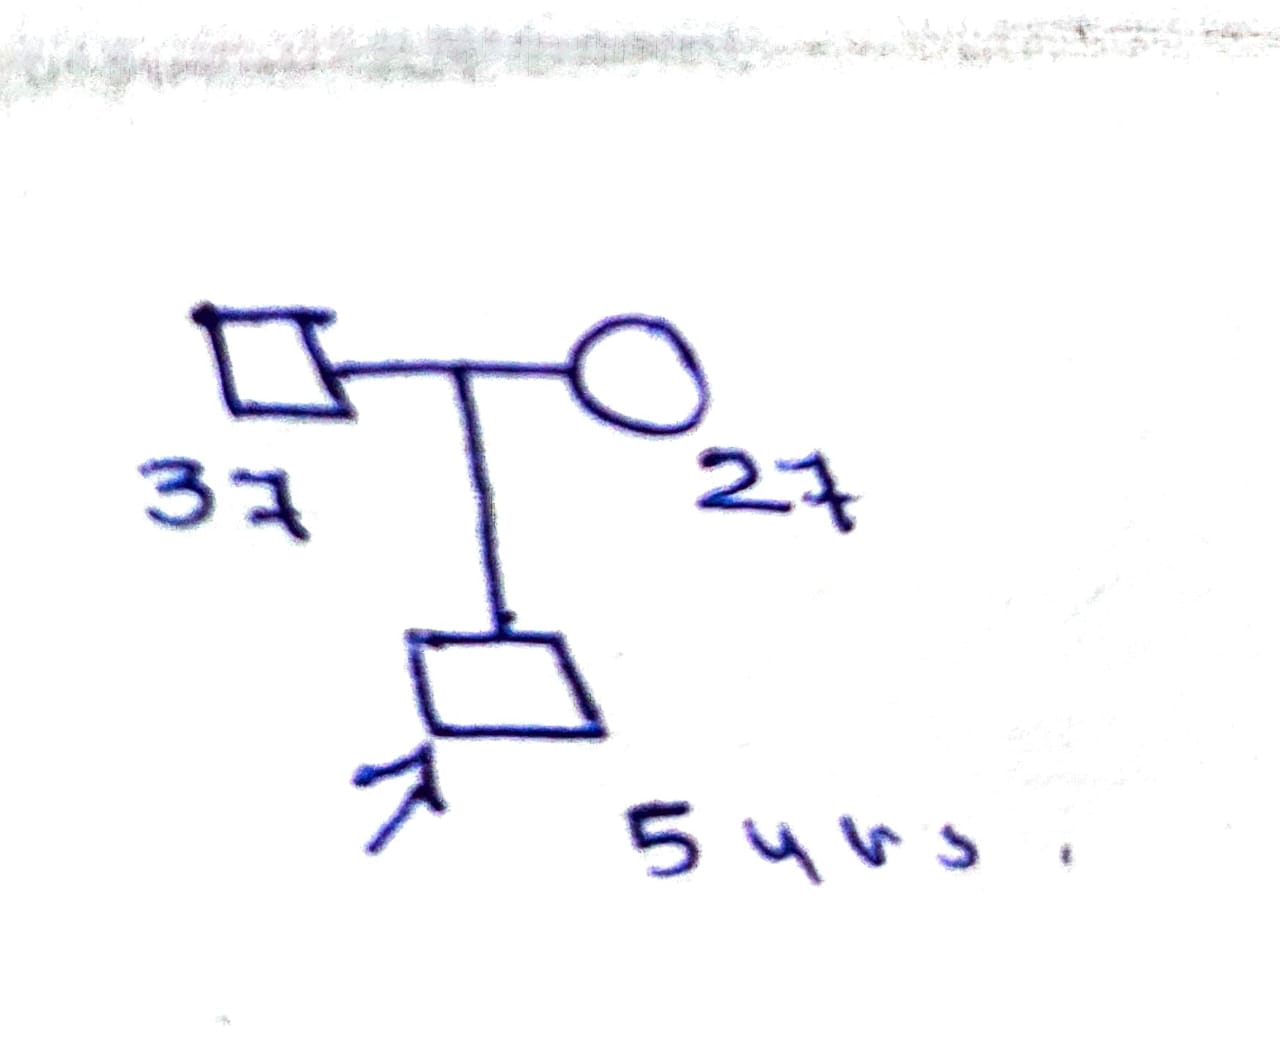 37
27
5 yrs.